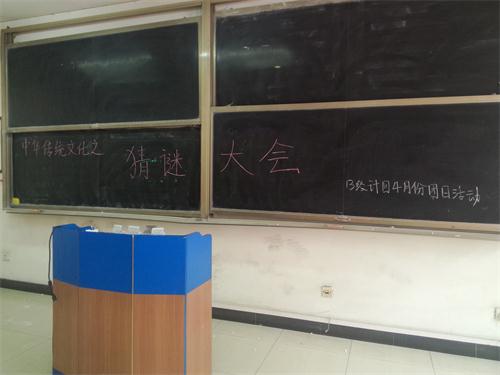 中华传统文化之
猜谜大会
13经计团4月份团日活动